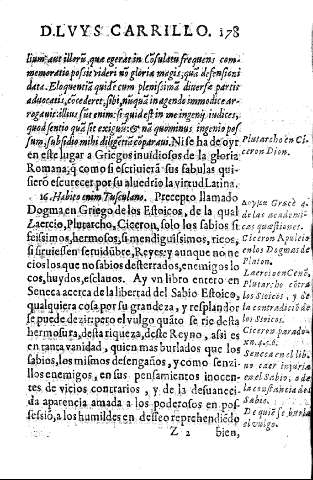 D. LVYS CARRILLO. 178
lium: aut illorũ, quæ egerat in Cõsulatu frequens com-
memoratio possit videri nõ gloria magis, quã defensioni
data. Eloquentiã quide cum plenissima diuersæ partis
aduocatis, cõcederet, sibi, nũquã in agendo immodice ar-
rogauit: illius sũt enim: si quid est in me ingenij iudices,
quod sentio quã sit exiguũ: & nã quominus ingenio pos-
sum, subsidio mihi diligẽtiã cõparaui. Ni se ha de oyr
en este lugar a Griegos inuidiosos de la gloria
Romana, q̃ como si escriuierã sus fabulas qui-
sierõ escurecer por su aluedrio la virtud Latina.
16. Habito enim Tusculano. Precepto llamado
Dogma en Griego de los Estoicos, de la qual
Laercio, Plutarcho, Ciceron, solo los sabios si
feissimos, hermosos, si mendiguissimos, ricos,
si siruiessen seruidũbre, Reyes: y aunque no ne
cios los que no sabios desterrados, enemigos lo
cos, huydos, esclauos. Ay vn libro entero en
Seneca acerca de la libertad del Sabio Estoico,
qualquiera cosa por su grandeza, y resplandor
se puede dezir, pero el vulgo quãto se rie desta
hermosura, desta riqueza, deste Reyno, assi es
en tanta vanidad, quien mas burlados que los
sabios, los mismos desengaños, y como senzi-
llos enemigos, en sus pensamientos inocen-
tes de vicios contrarios, y de la desuaneci-
da aparencia amada a los poderosos en pos
sessiõ, a los humildes en desseo reprehendiẽdo
Z 2 bien,
Plutarcho en Ci-
ceron Dion.
Græcè 4.
de las academi-
cas questiones.
Ciceron Apuleio
en los Dogmas de
Platon.
Laercio en Cenõ,
Plutarcho cõtra
los Stoicos, y de
la contradiciõ de
los Stoicos.
Ciceron parado-
xn. 4.5.6.
Seneca en el lib.
no caer injuria
en el Sabio, o de
la cõstancia del
Sabio.
De quiẽ se burla
el vulgo.